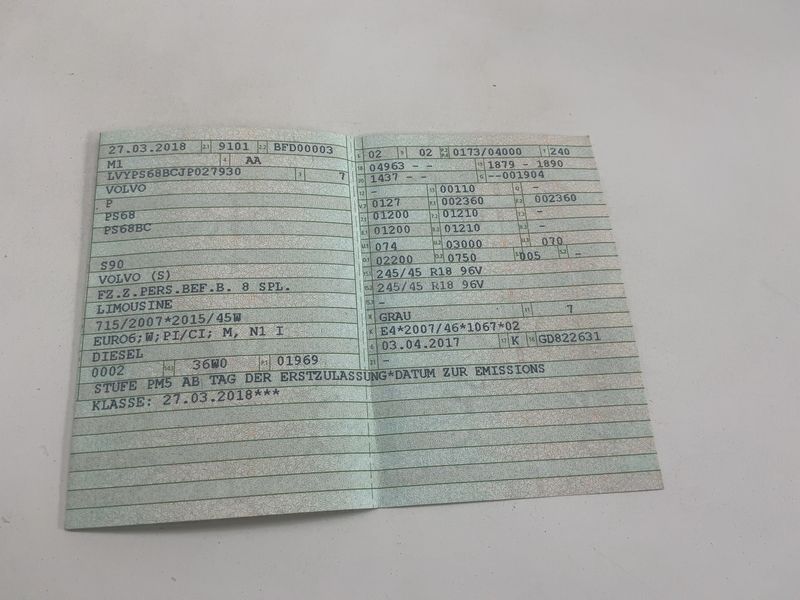 27.03.2018 2.1 9101 2.2 BFD00003
M1 4 AA
LVYPS68BCJP027930 3 7
VOLVO
P
PS68
PS68BC
S90
VOLVO (S)
FZ.Z.PERS.BEF.B. 8 SPL.
LIMOUSINE
715/2007*2015/45W
EURO6;W;PI/CI; M, N1 I
DIESEL
0002 14.1 36W0 P.1 01969
STUFE PM5 AB TAG DER ERSTZULASSUNG*DATUM ZUR EMISSIONS
KLASSE: 27.03.2018***
02 9 02 0173/04000 T 240
18 04963 - - 19 1879 - 1890
20 1437 - - G --001904
12 - 13 00110 Q -
V.7 0127 F.1 002360 F.2 002360
7.1 01200 7.2 01210 7.3 -
8.1 01200 8.2 01210 8.3 -
U.1 074 U.2 03000 U.3 070
O.1 02200 O.2 0750 S.1 005 S.2 -
15.1 245/45 R18 96V
15.2 245/45 R18 96V
15.3 -
R GRAU 11 7
K E4*2007/46*1067*02
6 03.04.2017 17 K 16 GD822631
21 -